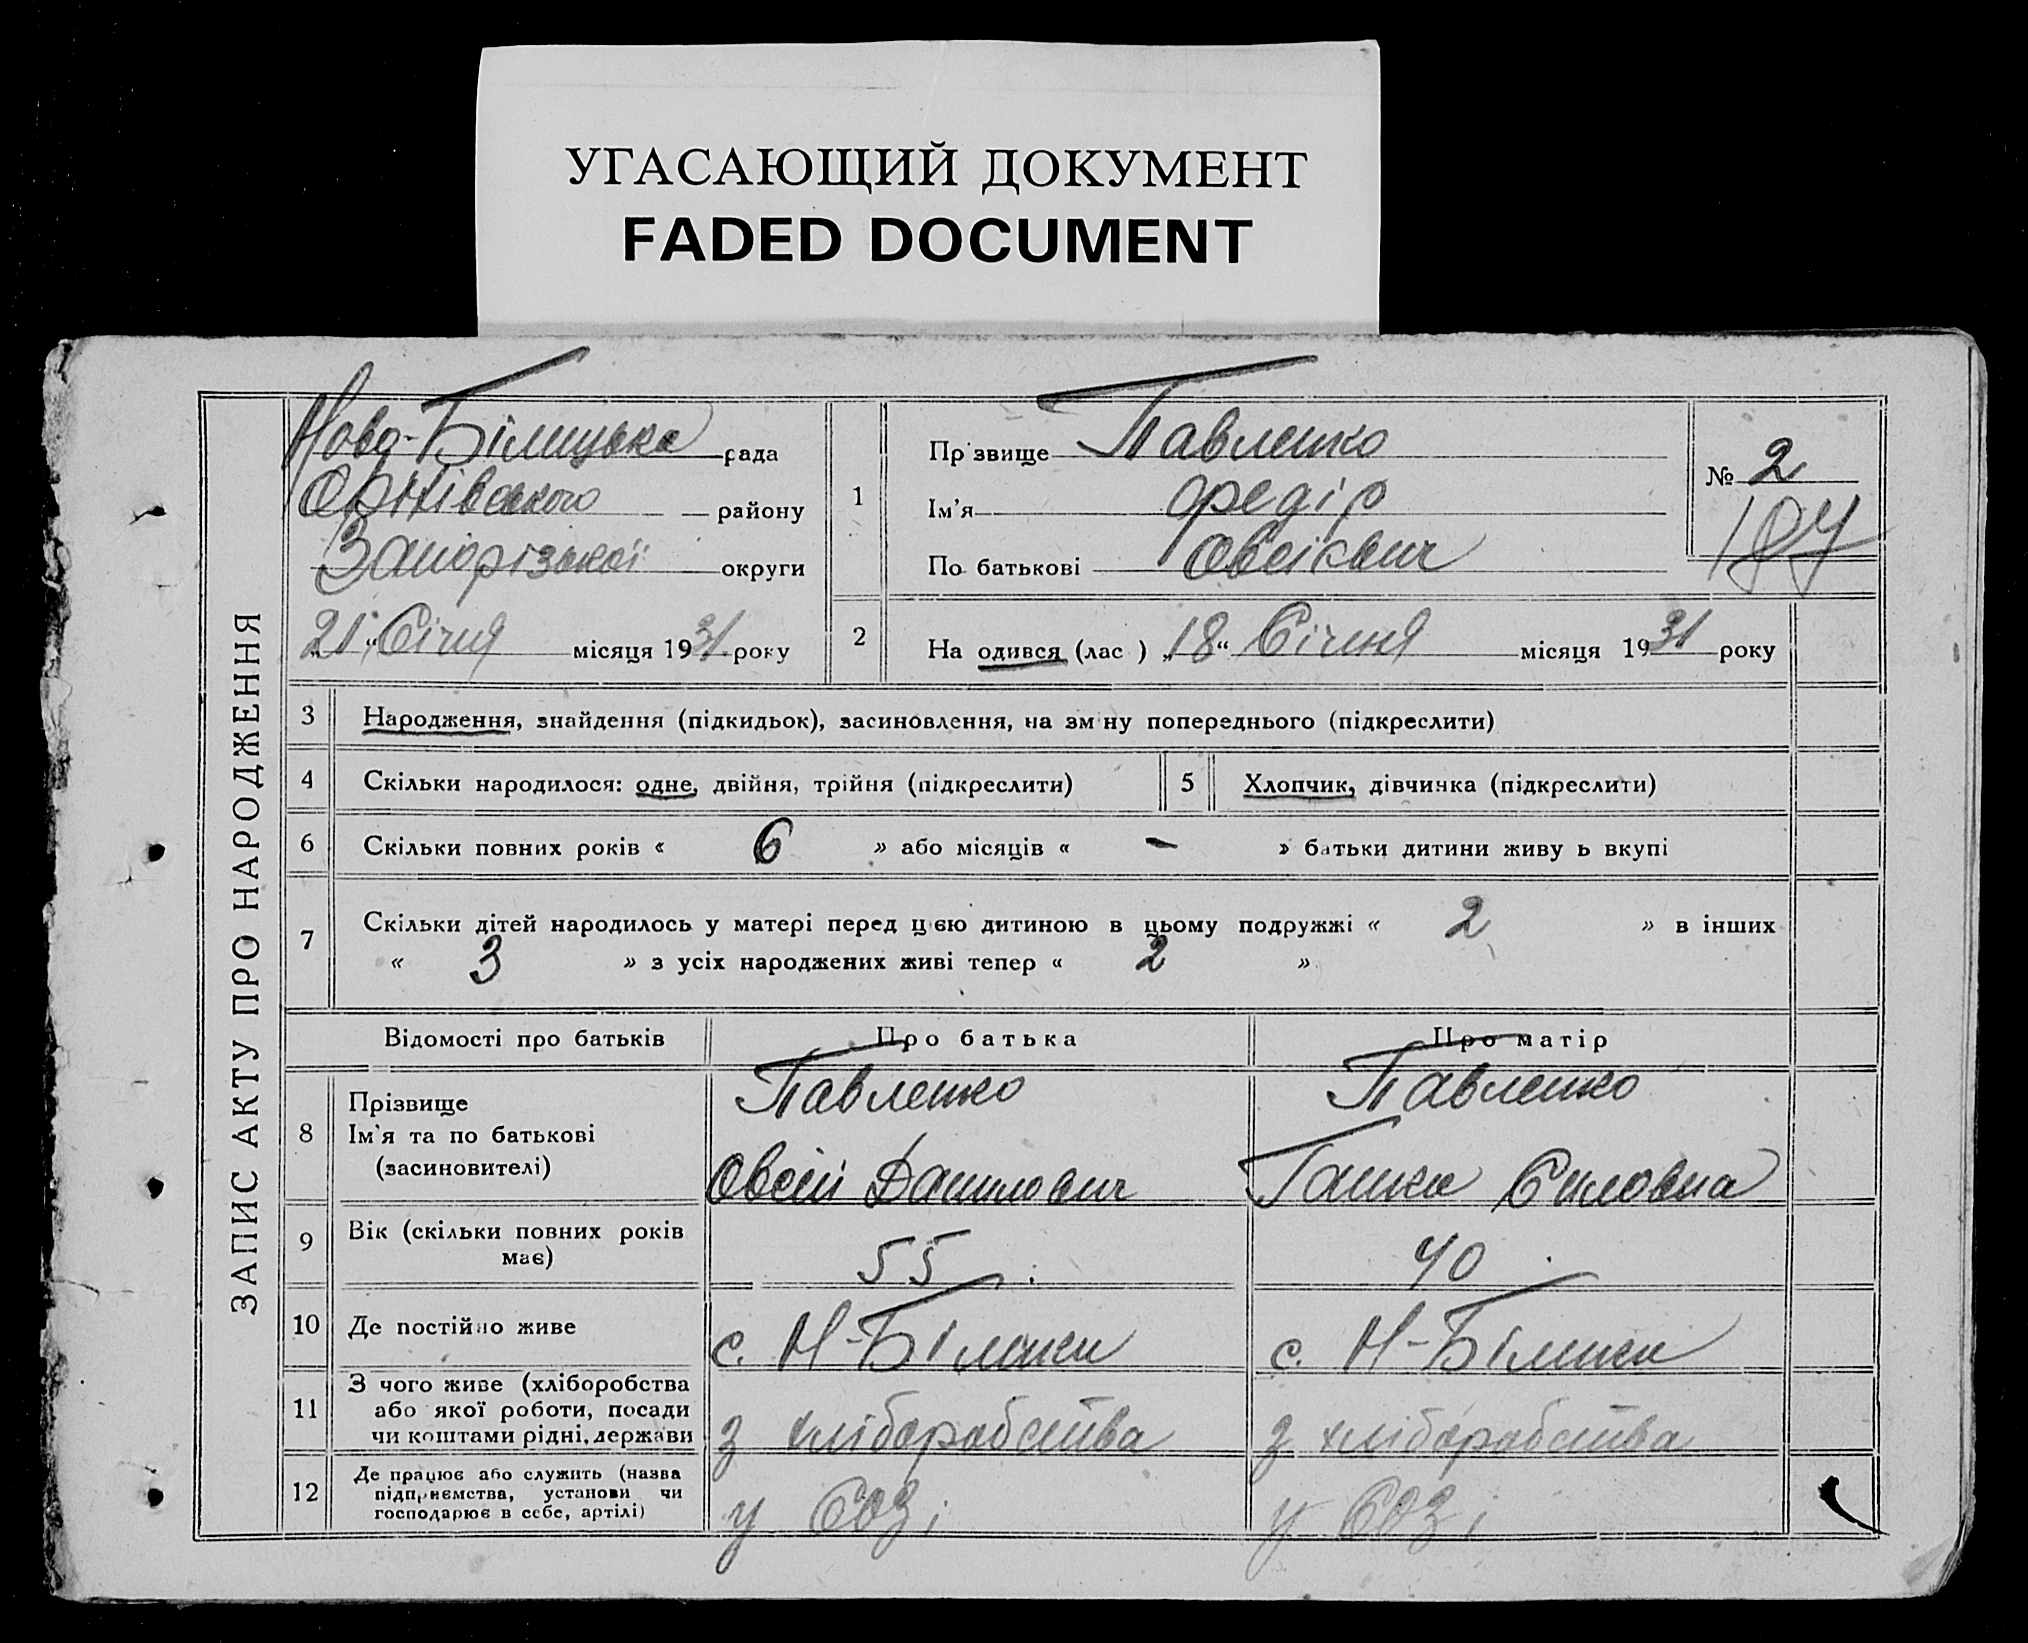 УГАСАЮЩИЙ ДОКУМЕНТ
FADED DOCUMENT
ЗАПИС АКТУ ПРО НАРОДЖЕННЯ
Ново-Білицька рада
району
Запорізької округи
„21“ Січня місяця 1931 року
1
Прізвище Павленко
Ім'я Федір
По батькові Овсієвич
№ 2
2
Народився (лас ) „18“ Січня місяця 1931 року
3 Народження, знайдення (підкидьок), засиновлення, на зміну попереднього (підкреслити)
4 Скільки народилося: одне, двійня, трійня (підкреслити)
5 Хлопчик, дівчинка (підкреслити)
6 Скільки повних років « 6 » або місяців « - » батьки дитини живуть вкупі
7 Скільки дітей народилось у матері перед цією дитиною в цьому подружжі « 2 » в інших
« 3 » з усіх народжених живі тепер « 2 »
Відомості про батьків Про батька Про матір
8 Прізвище
Ім'я та по батькові
(засиновителі)
Павленко
Овсій Данилович
Павленко
Ганна Силовна
9 Вік (скільки повних років
має)
55 40
10 Де постійно живе с. Н-Білики с. Н-Білики
11 З чого живе (хліборобства
або якої роботи, посади
чи коштами рідні, держави
з хліборобства з хліборобства
12 Де працює або служить (назва
підприємства, установи чи
господарює в себе, артілі)
у СОЗі у СОЗі